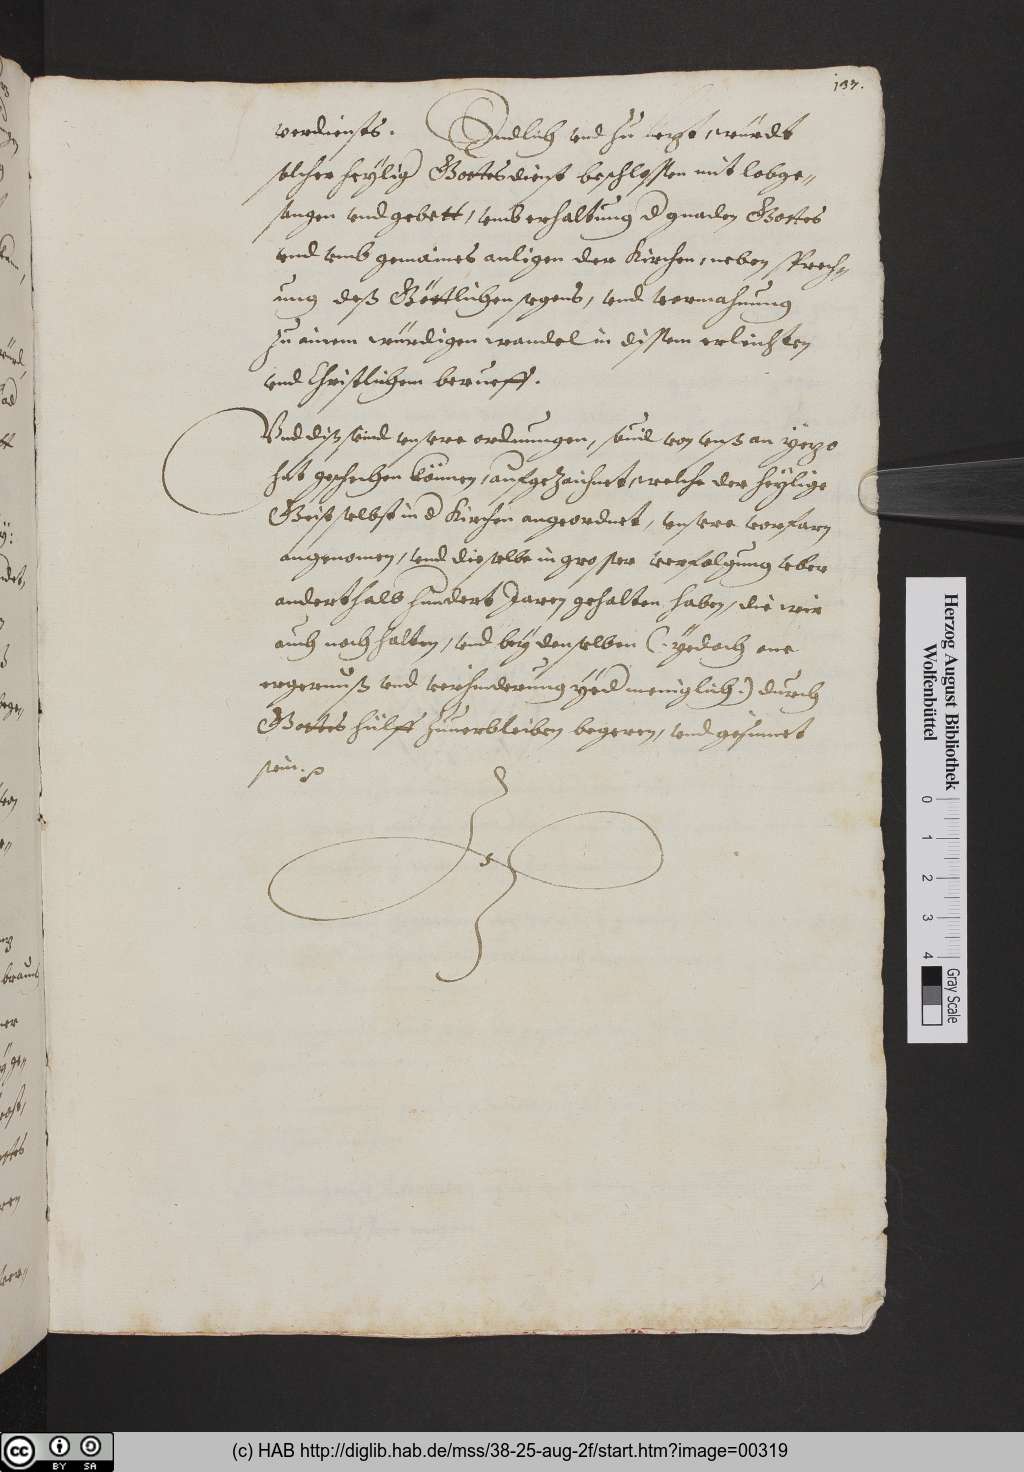 137.
verdiensts. Endlich vnd zu letzt, würdt
solcher heylig Gottesdienst beschlossen mit lobge„
sangen vnd gebett, vmb erhaltung d gnaden Gottes
vnd vmb gemaines anligen der Kirchen, neben sprech„
ung deß Göttlichen segens, vnd vermahnung
zu ainem würdigen wandel in dissem erleichten
vnd Christlichem berueff.
Vnd diß seind vnsere ordnungen, souil von vnß an yetzo
hat geschehen können, aufgezaichnet, welche der heylige
Geist selbst in d Kirchen angeordnet, vnsere vorfarn
angenomen, vnd dieselbe in grosser verfolgung vber
anderthalb hundert Jaren gehalten haben, die wir
auch noch halten, vnd bey denselben (: yedoch one
ergernuß vnd verhinderung yed meniglich :) durch
Gottes hülff zuuerbleiben begeren, vnd gesinnet
sein.
Herzog August Bibliothek
Wolfenbüttel
0 1 2 3 4
Gray Scale
BY SA
(c) HAB http://diglib.hab.de/mss/38-25-aug-2f/start.htm?image=00319